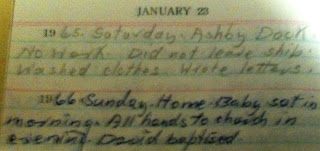 JANUARY 23
1965. Saturday. Ashby Dock
No work. Did not leave ship.
Washed clothes. Wrote letters.
1966. Sunday. Home. Baby sat in
morning. All hands to church in
evening. David baptised.